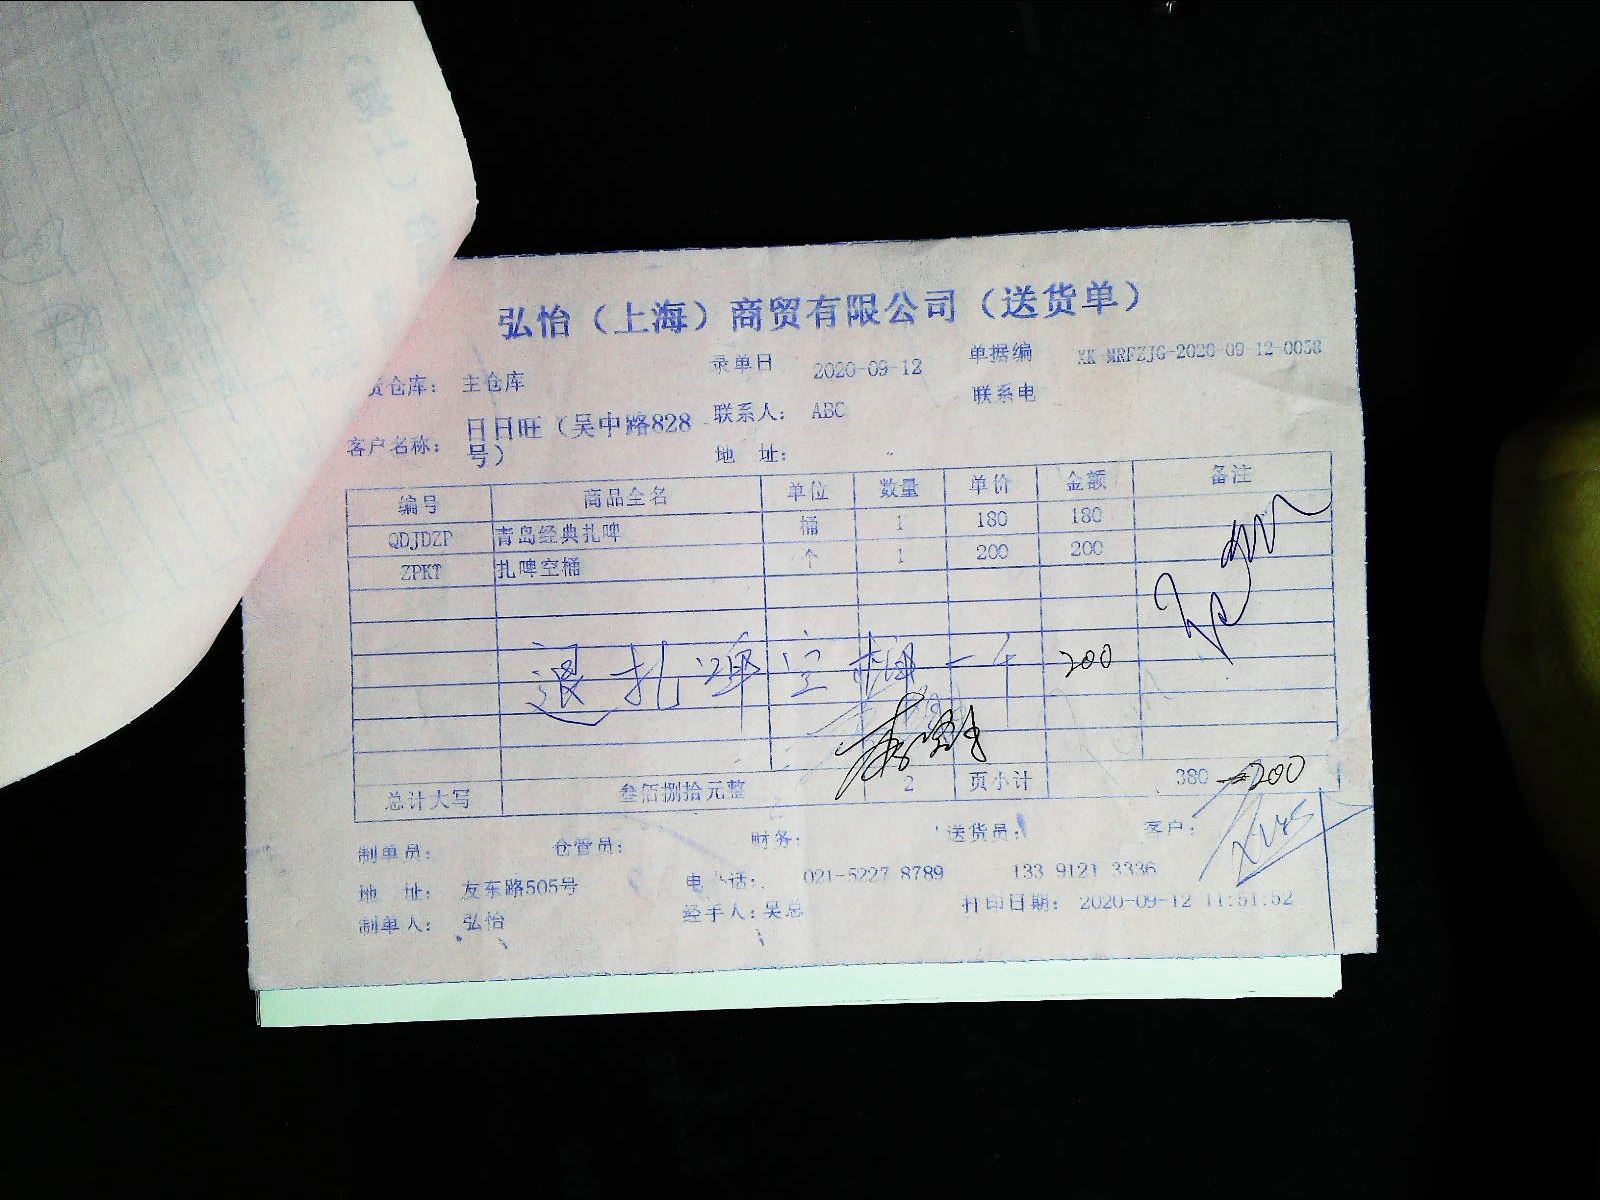 弘怡（上海）商贸有限公司（送货单）
录单日 2020-09-12 单据编 XK-MRFZJG-2020-09-12-0058
货仓库： 主仓库
联系人： ABC 联系电
客户名称： 日日旺（吴中路828号）
地 址：
编号 商品全名 单位 数量 单价 金额 备注
QDJDZP 青岛经典扎啤 桶 1 180 180
ZPKT 扎啤空桶 个 1 200 200
退扎啤空桶一个 200
总计大写 叁佰捌拾元整 2 页小计 380 -200
制单员： 仓管员： 财务： 送货员： 客户：
地 址： 友东路505号 电 话： 021-5227 8789 133 9121 3336
制单人： 弘怡 经手人：吴总 打印日期： 2020-09-12 11:51:52